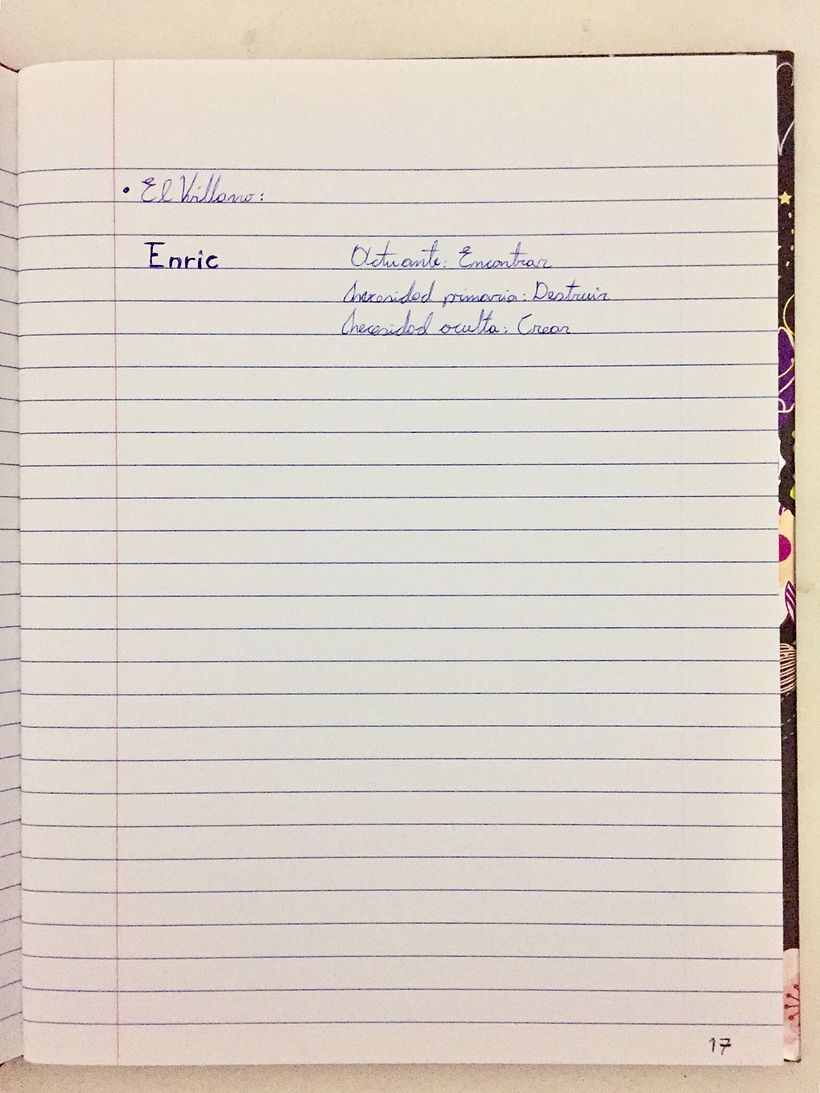 • El Villano:
Enric Actuante: Encontrar
Necesidad primaria: Destruir
Necesidad oculta: Crear
17